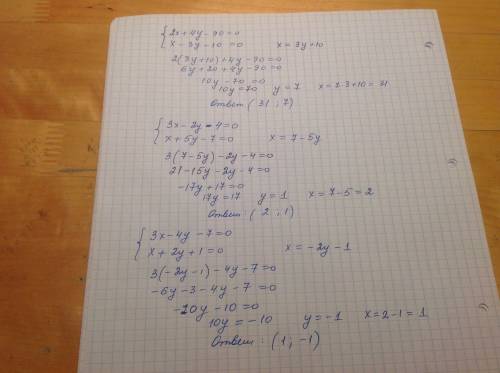 2x + 4y - 90 = 0
x - 3y - 10 = 0 x = 3y + 10
2(3y + 10) + 4y - 90 = 0
6y + 20 + 4y - 90 = 0
10y - 70 = 0
10y = 70 y = 7 x = 7·3 + 10 = 31
Ответ (31; 7)
3x - 2y - 4 = 0
x + 5y - 7 = 0 x = 7 - 5y
3(7 - 5y) - 2y - 4 = 0
21 - 15y - 2y - 4 = 0
-17y + 17 = 0
17y = 17 y = 1 x = 7 - 5 = 2
Ответ (2; 1)
3x - 4y - 7 = 0
x + 2y + 1 = 0 x = -2y - 1
3(-2y - 1) - 4y - 7 = 0
-6y - 3 - 4y - 7 = 0
-10y - 10 = 0
10y = -10 y = -1 x = 2 - 1 = 1
Ответ: (1; -1)